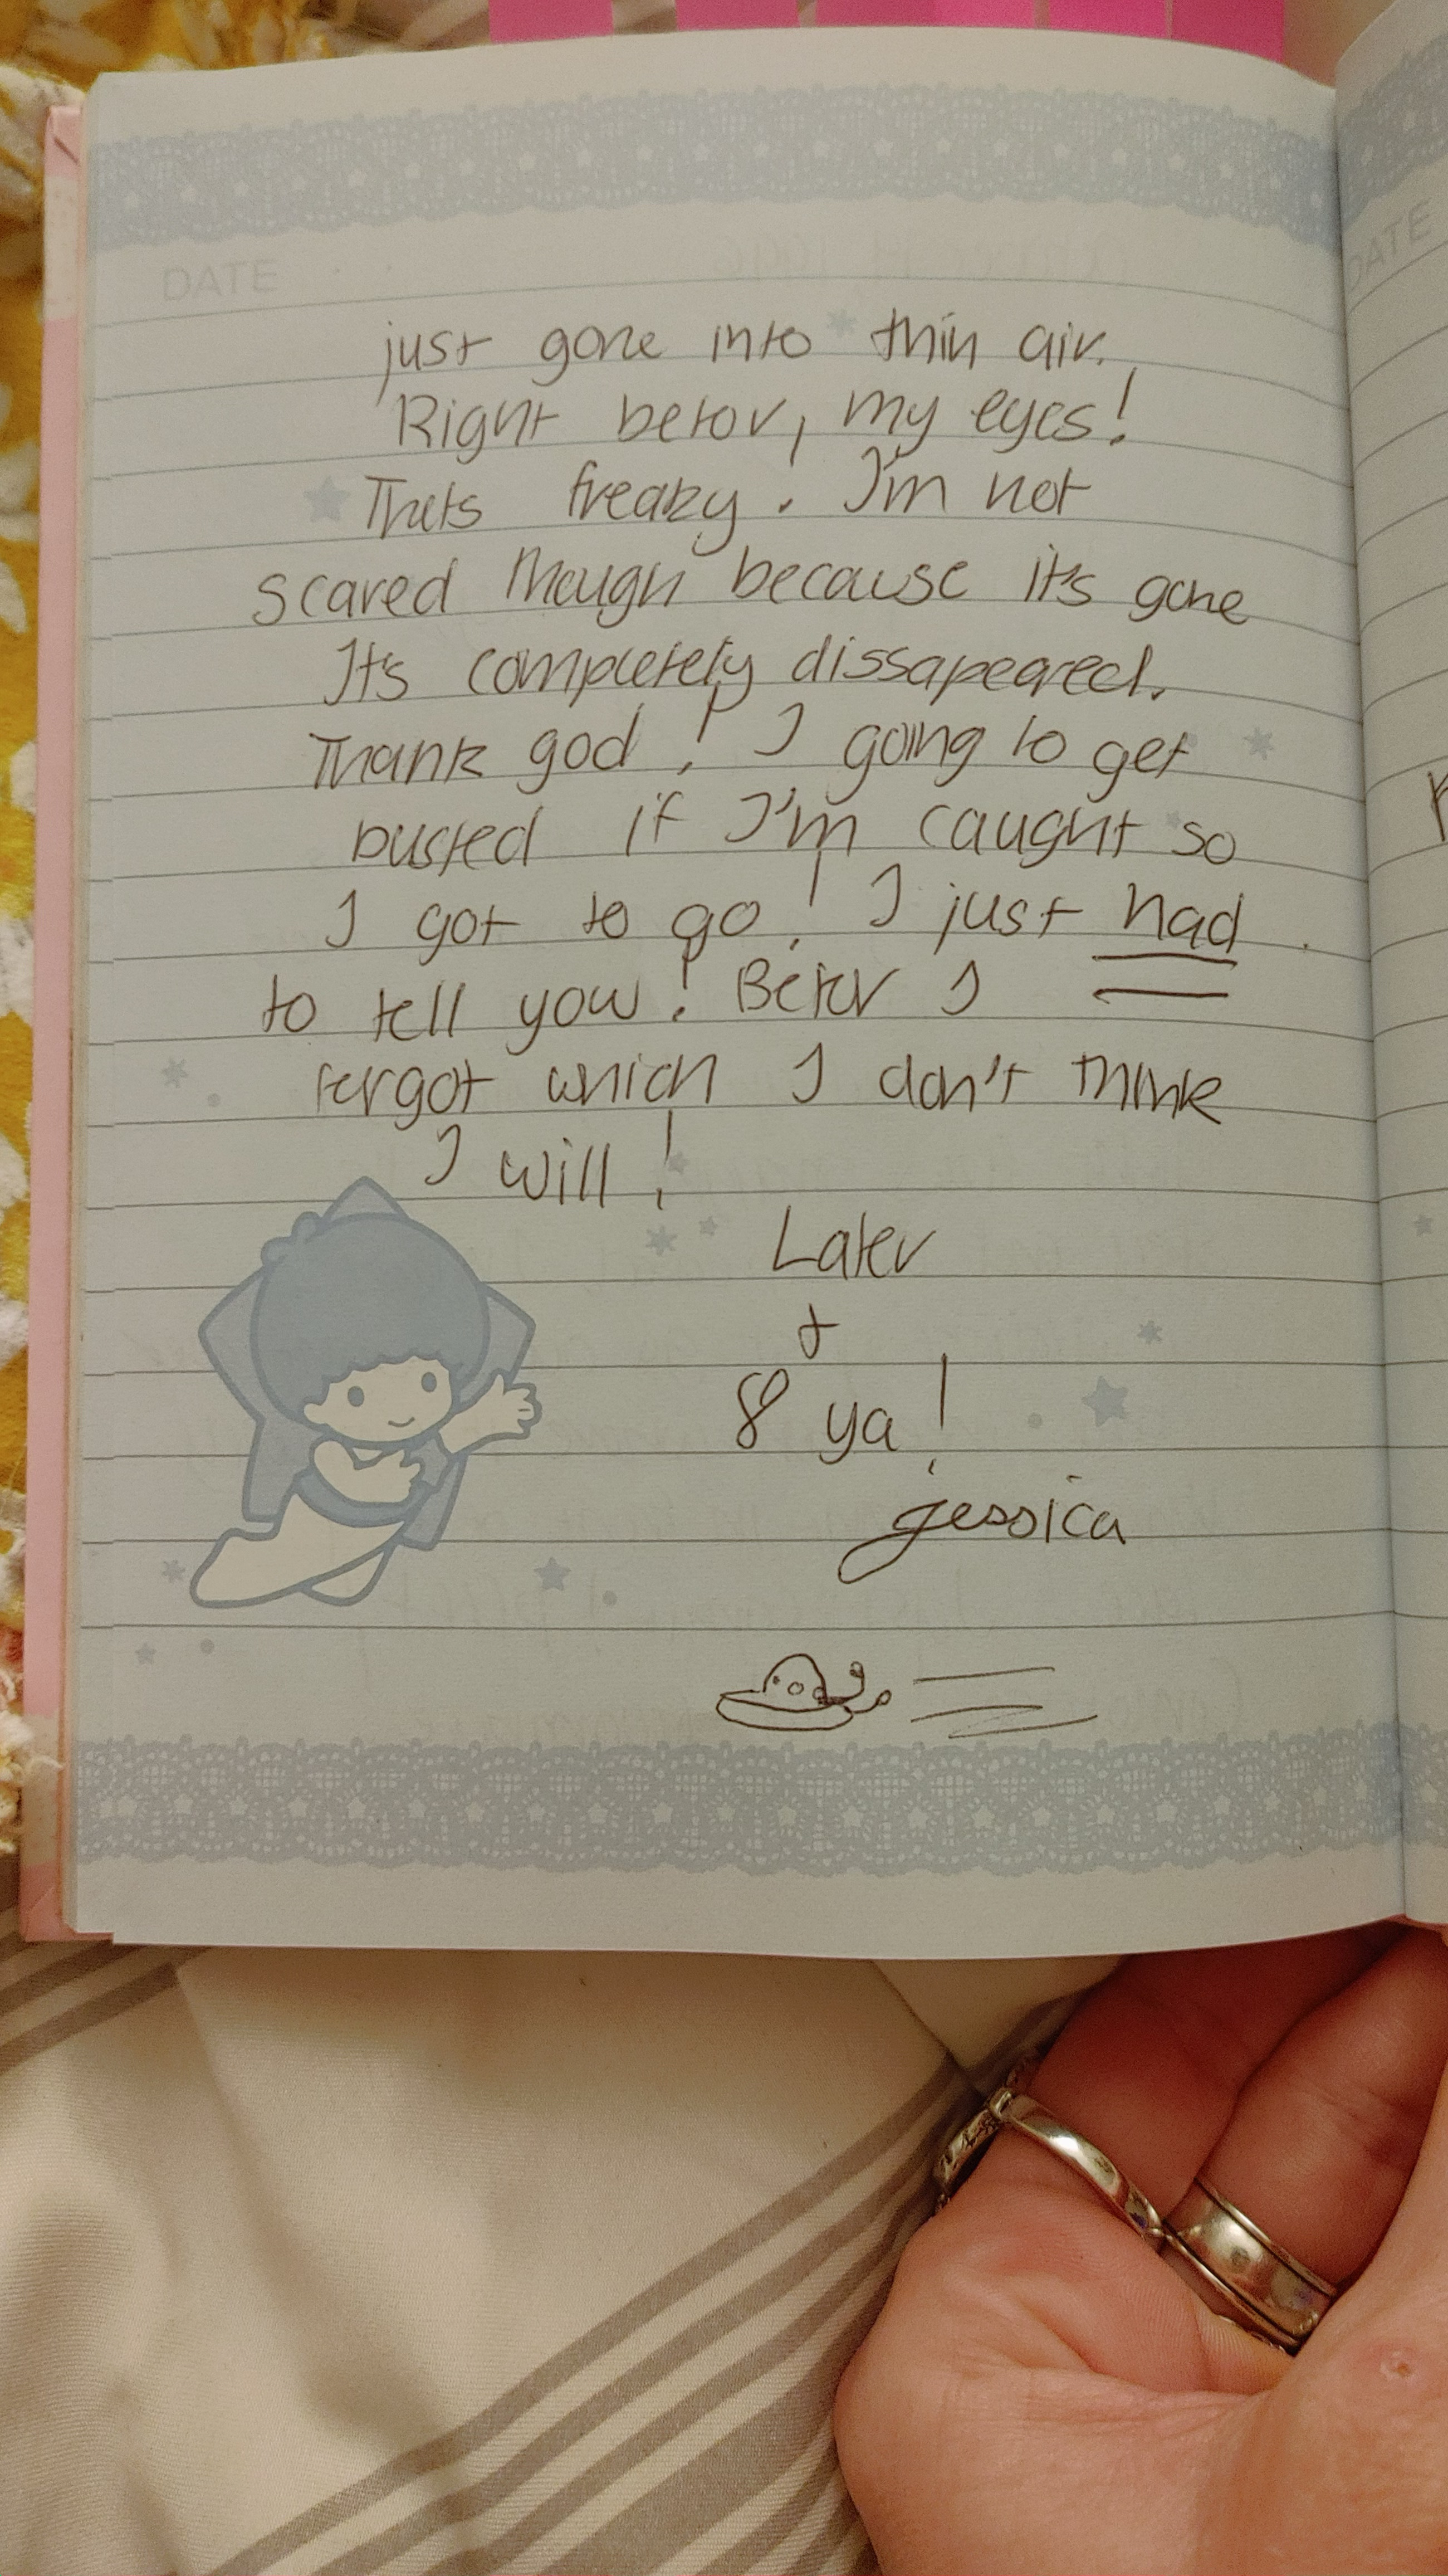 DATE
just gone into thin air.
Right befor, my eyes!
Thats freaky. I'm not
scared though because it's gone
It's completely dissapeared.
Thank god! I going to get
busted if I'm caught so
I got to go! I just had
to tell you! Befor I
forgot which I don't think
I will!
Later
+
8 ya!
Jessica
DATE